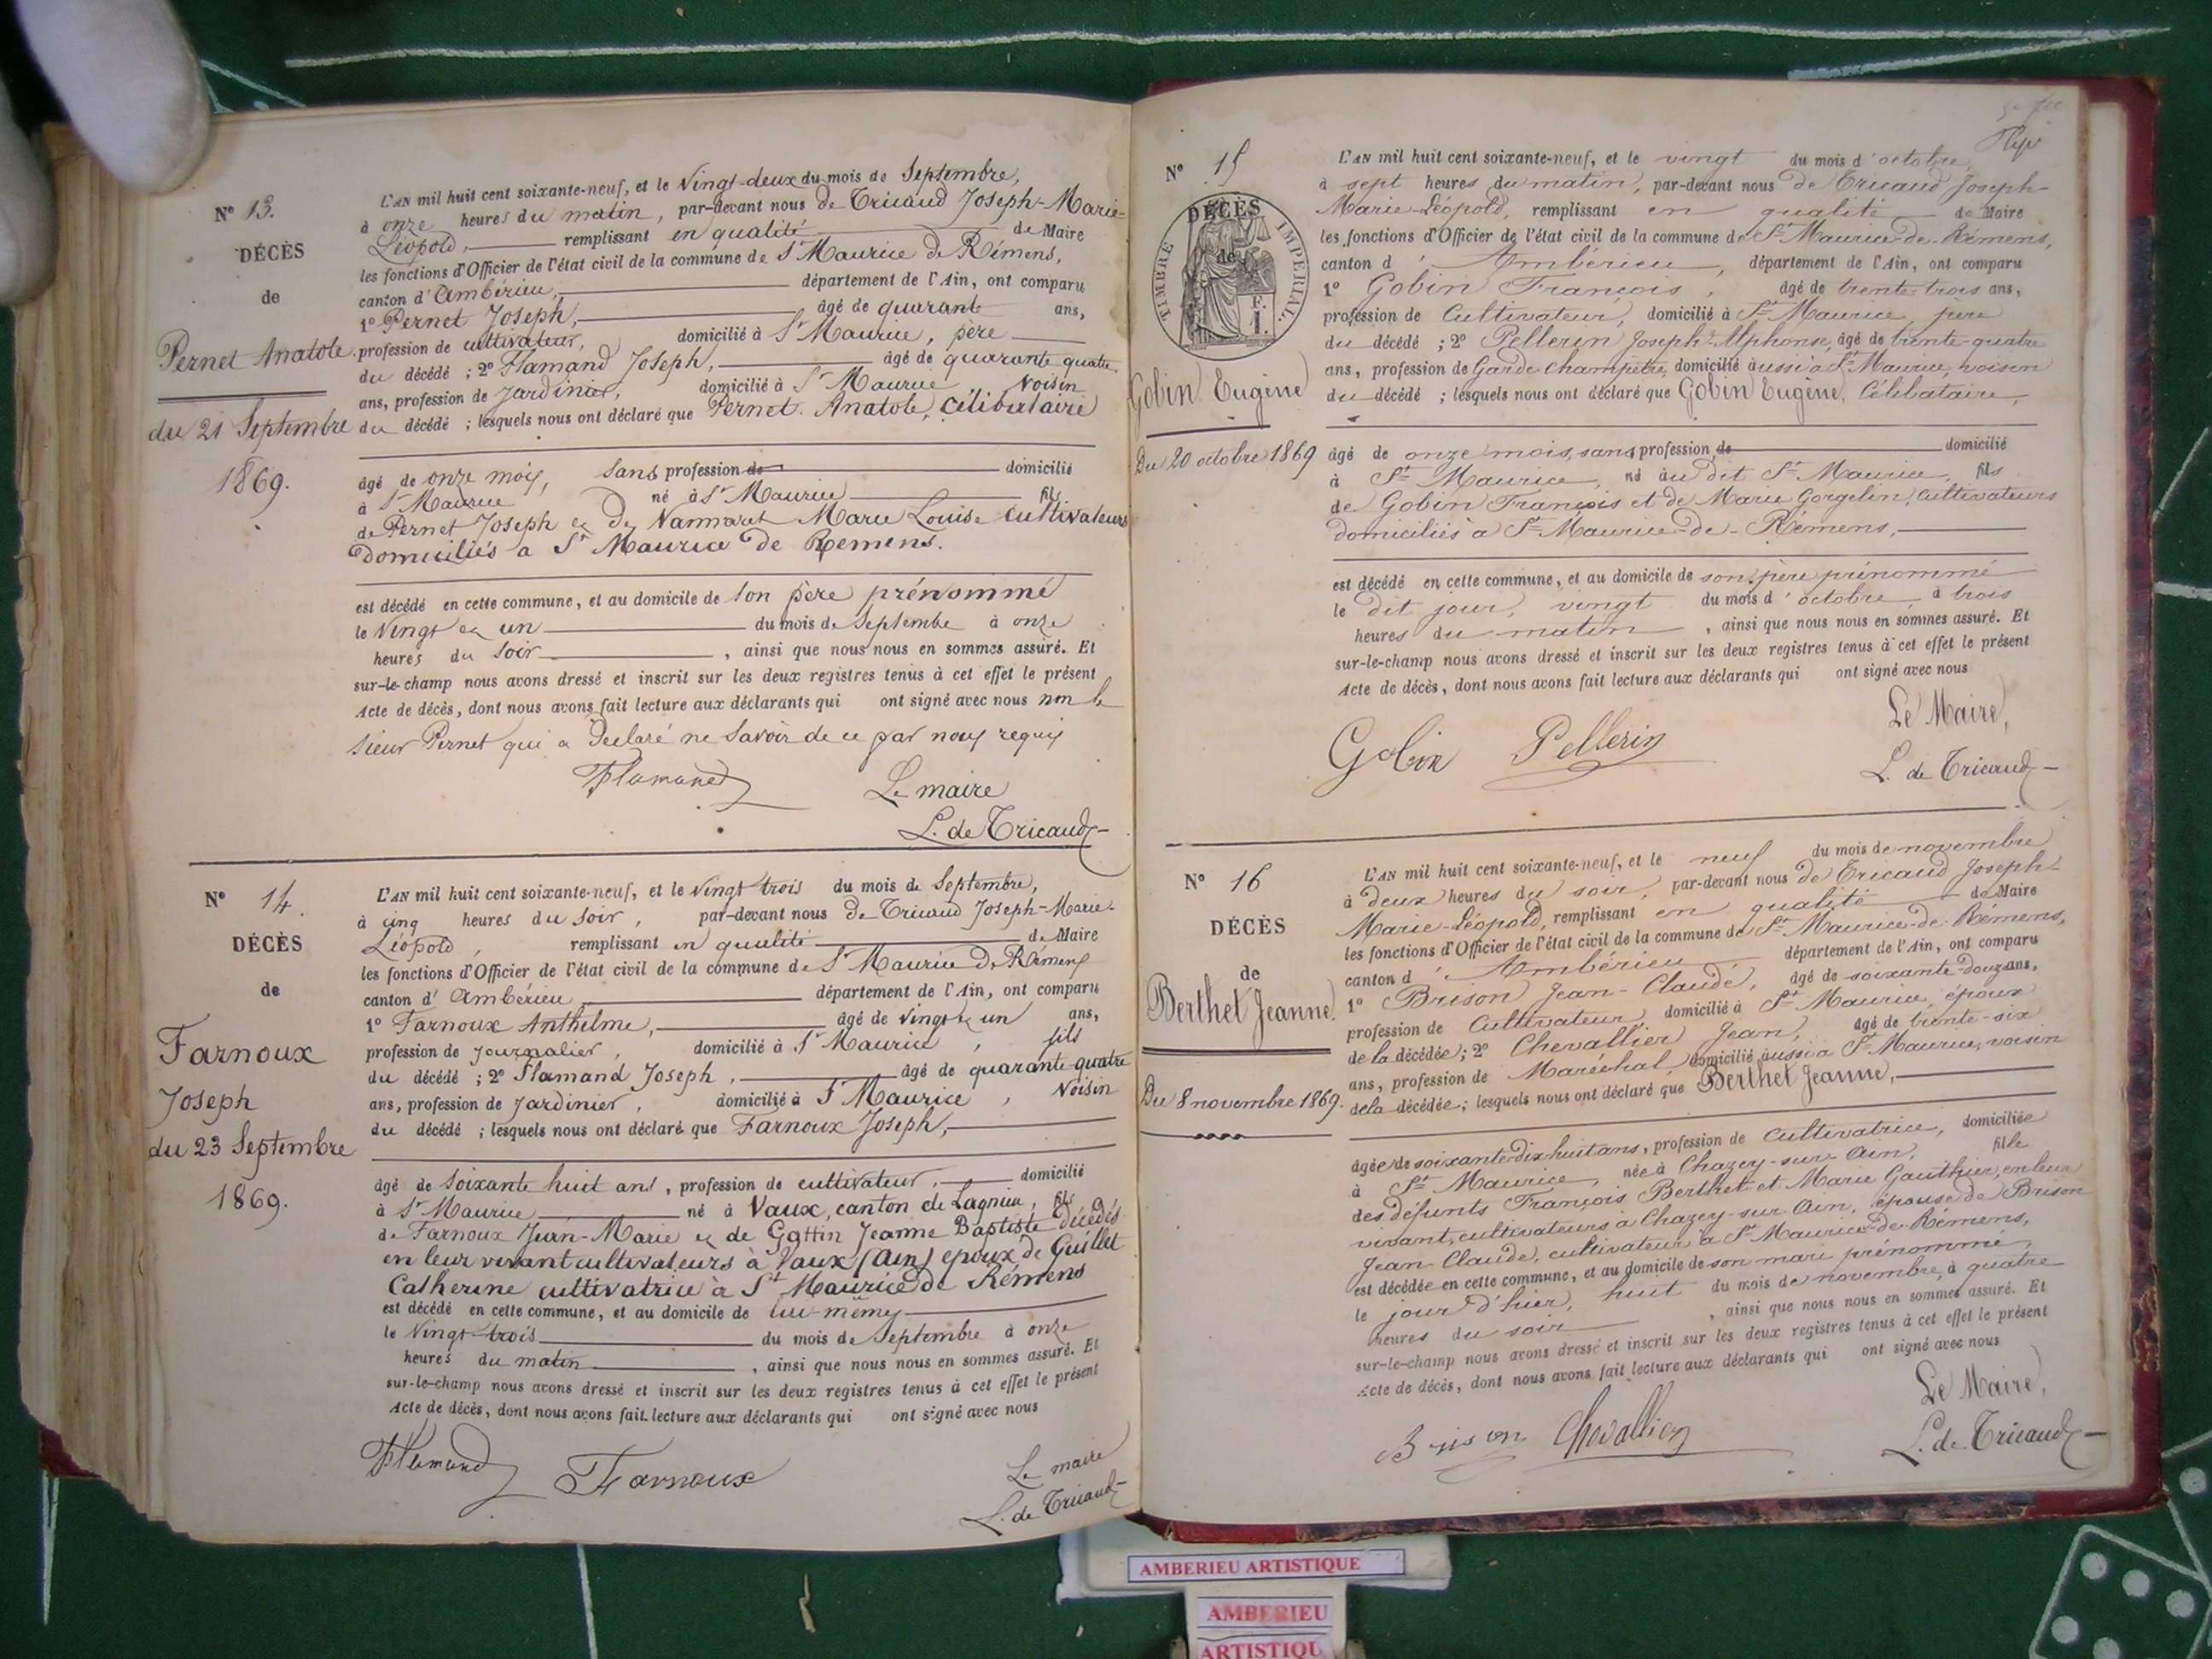 Nº 13.
DÉCÈS
de
Pernet Anatole
du 21 Septembre
1869.
L'AN mil huit cent soixante-neuf, et le Vingt-deux du mois de Septembre,
à onze heures du matin, par-devant nous De Tricaud Joseph-Marie-
Léopold, remplissant en qualité de Maire
les fonctions d'Officier de l'état civil de la commune de St Maurice de Rémens,
canton d'Ambérieu, département de l'Ain, ont comparu
1º Pernet Joseph, âgé de quarante ans,
profession de cultivateur, domicilié à St Maurice, père
du décédé ; 2º Flamand Joseph, âgé de quarante quatre
ans, profession de Jardinier, domicilié à St Maurice, Voisin
du décédé ; lesquels nous ont déclaré que Pernet Anatole, Célibataire
âgé de onze mois, sans profession de domicilié
à St Maurice né à St Maurice fils
de Pernet Joseph et de Marie Louise cultivateurs
domiciliés a St Maurice de Remens.
est décédé en cette commune, et au domicile de son père prénommé
le Vingt et un du mois de Septembe à onze
heures du soir, ainsi que nous nous en sommes assuré. Et
sur-le-champ nous avons dressé et inscrit sur les deux registres tenus à cet effet le présent
Acte de décès, dont nous avons fait lecture aux déclarants qui ont signé avec nous non le
sieur Pernet qui a Déclaré ne savoir de ce par nous requis
Flamand Le maire
L. de Tricaud
Nº 14.
DÉCÈS
de
Farnoux
Joseph
du 23 Septembre
1869.
L'AN mil huit cent soixante-neuf, et le Vingt trois du mois de Septembre,
à cinq heures du soir, par-devant nous De Tricaud Joseph-Marie-
Léopold, remplissant en qualité de Maire
les fonctions d'Officier de l'état civil de la commune de St Maurice de Rémens
canton d'Ambérieu département de l'Ain, ont comparu
1º Farnoux Anthelme, âgé de vingt et un ans,
profession de journalier, domicilié à St Maurice, fils
du décédé ; 2º Flamand Joseph, âgé de quarante quatre
ans, profession de Jardinier, domicilié à St Maurice, Voisin
du décédé ; lesquels nous ont déclaré que Farnoux Joseph,
âgé de soixante huit ans, profession de cultivateur, domicilié
à St Maurice né à Vaux, canton de Lagnieu, fils
de Farnoux Jean-Marie et de Gottin Jeanne Baptiste décédés
en leur vivant cultivateurs à Vaux (Ain) époux de Guillet
Catherine cultivatrice à St Maurice de Rémens
est décédé en cette commune, et au domicile de lui-même
le Vingt-trois du mois de Septembre à onze
heures du matin, ainsi que nous nous en sommes assuré. Et
sur-le-champ nous avons dressé et inscrit sur les deux registres tenus à cet effet le présent
Acte de décès, dont nous avons fait lecture aux déclarants qui ont signé avec nous
Flamand Farnoux Le maire
L. de Tricaud
Nº 15
TIMBRE IMPÉRIAL
DÉCÈS
de
F.
1.
Gobin Eugène
Du 20 octobre 1869
L'AN mil huit cent soixante-neuf, et le vingt du mois d'octobre
à sept heures du matin, par-devant nous de Tricaud Joseph-
Marie-Léopold, remplissant en qualité de Maire
les fonctions d'Officier de l'état civil de la commune de St Maurice-de-Rémens,
canton d'Ambérieu, département de l'Ain, ont comparu
1º Gobin François, âgé de trente-trois ans,
profession de Cultivateur, domicilié à St Maurice, père
du décédé ; 2º Pellerin Joseph-Alphonse, âgé de trente-quatre
ans, profession de Garde Champêtre, domicilié aussi à St Maurice, voisin
du décédé ; lesquels nous ont déclaré que Gobin Eugène, Célibataire,
âgé de onze mois, sans profession de domicilié
à St Maurice, né au dit St Maurice, fils
de Gobin François et de Marie Gorgelin, cultivateurs
domiciliés à St Maurice-de-Rémens,
est décédé en cette commune, et au domicile de son père prénommé
le dit jour, vingt du mois d'octobre à trois
heures du matin, ainsi que nous nous en sommes assuré. Et
sur-le-champ nous avons dressé et inscrit sur les deux registres tenus à cet effet le présent
Acte de décès, dont nous avons fait lecture aux déclarants qui ont signé avec nous
Gobin Pellerin Le Maire,
L. de Tricaud
Nº 16
DÉCÈS
de
Berthet Jeanne.
Du 8 novembre 1869.
L'AN mil huit cent soixante-neuf, et le neuf du mois de novembre
à deux heures du soir, par-devant nous de Tricaud Joseph-
Marie-Léopold, remplissant en qualité de Maire
les fonctions d'Officier de l'état civil de la commune de St Maurice-de-Rémens,
canton d'Ambérieu département de l'Ain, ont comparu
1º Brison Jean-Claude, âgé de soixante-douze ans,
profession de Cultivateur, domicilié à St Maurice, époux
de la décédée ; 2º Chevallier Jean, âgé de trente-six
ans, profession de Maréchal, domicilié aussi à St Maurice, voisin
de la décédée ; lesquels nous ont déclaré que Berthet Jeanne,
âgée de soixante-dix-huit ans, profession de Cultivatrice, domiciliée
à St Maurice, née à Chazey-sur-Ain, fille
des défunts François Berthet et Marie Gauthier, en leur
vivant, cultivateurs à Chazey-sur-Ain, épouse de Brison
Jean Claude, cultivateur à St Maurice-de-Rémens,
est décédée en cette commune, et au domicile de son mari prénommé
le jour d'hier, huit du mois de novembre, à quatre
heures du soir, ainsi que nous nous en sommes assuré. Et
sur-le-champ nous avons dressé et inscrit sur les deux registres tenus à cet effet le présent
Acte de décès, dont nous avons fait lecture aux déclarants qui ont signé avec nous
Brison Chevallier Le Maire,
L. de Tricaud
AMBERIEU ARTISTIQUE
AMBERIEU
ARTISTIQU